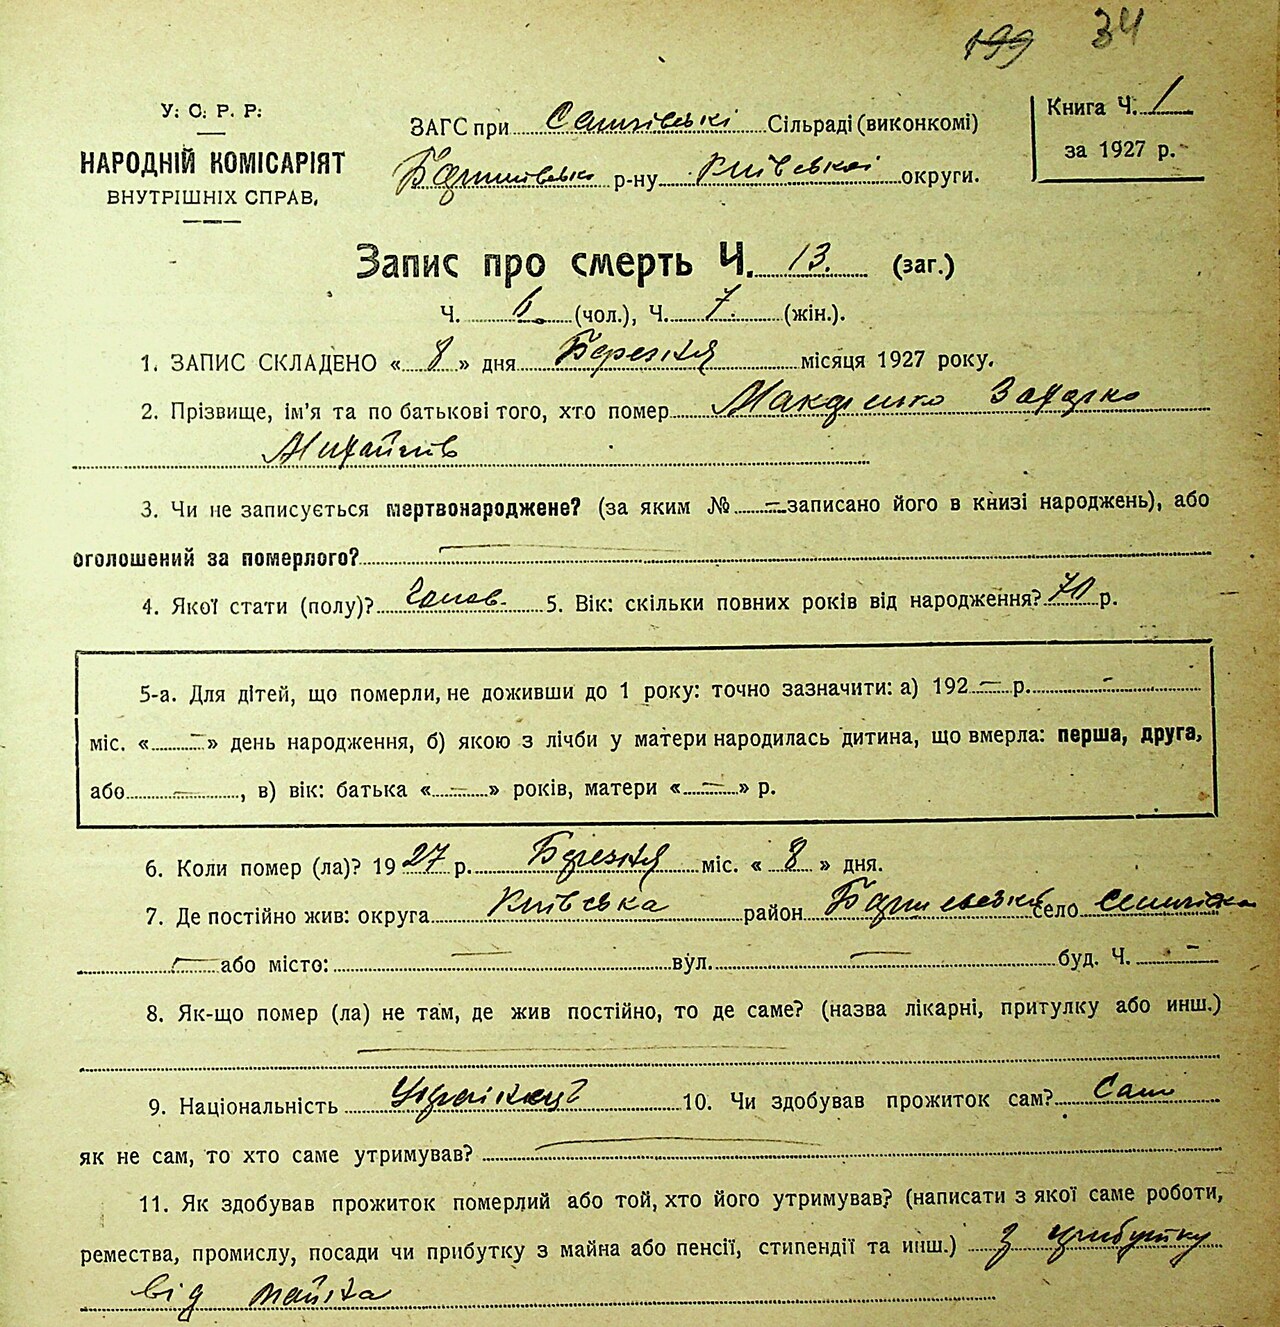 199 34
У. С. Р. Р.
НАРОДНІЙ КОМІСАРІЯТ
ВНУТРІШНІХ СПРАВ.
ЗАГС при Сілраді (виконкомі)
р-ну Київської округи.
Книга Ч. 1
за 1927 р.
Запис про смерть Ч. 13. (заг.)
Ч. 6 (чол.), Ч. 7 (жін.).
1. ЗАПИС СКЛАДЕНО « 8 » дня Березня місяця 1927 року.
2. Прізвище, ім'я та по батькові того, хто помер Захарко
Михайлів
3. Чи не записується мертвонароджене? (за яким № — записано його в книзі народжень), або
оголошений за померлого? —
4. Якої стати (полу)? Чолов. 5. Вік: скільки повних років від народження? 70 р.
5-а. Для дітей, що померли, не доживши до 1 року: точно зазначити: а) 192 — р. —
міс. « — » день народження, б) якою з лічби у матери народилась дитина, що вмерла: перша, друга,
або — , в) вік: батька « — » років, матери « — » р.
6. Коли помер (ла)? 19 27 р. Березня міс. « 8 » дня.
7. Де постійно жив: округа Київська район село
— або місто: — вул. — буд. Ч. —
8. Як-що помер (ла) не там, де жив постійно, то де саме? (назва лікарні, притулку або инш.)
—
9. Національність Українець 10. Чи здобував прожиток сам? Сам
як не сам, то хто саме утримував? —
11. Як здобував прожиток померлий або той, хто його утримував? (написати з якої саме роботи,
ремества, промислу, посади чи прибутку з майна або пенсії, стипендії та инш.) з прибутку
від майна